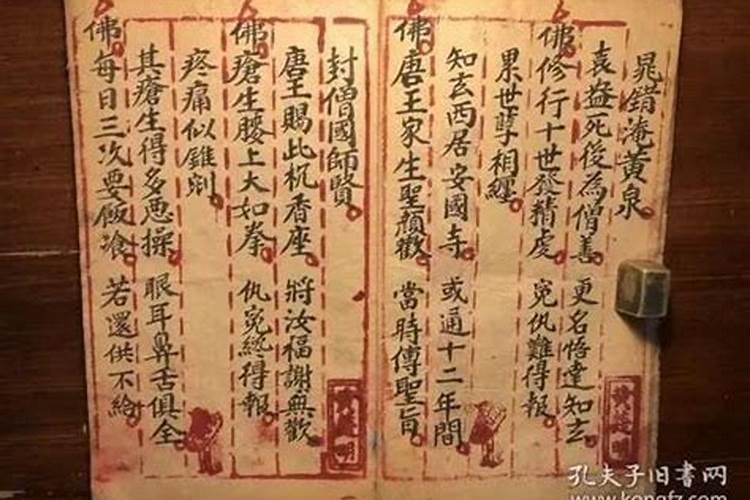 晁錯淹黃泉
袁益死後為僧善 更名悟達知玄
佛修行十世發精虔 冤仇難得報
累世孽相纏
知玄西居安國寺 或通十二年間
佛唐王家生聖顏歡 當時傳聖旨
封僧國師賢
唐王賜此杋香座 將汝福謝無歡
佛瘡生腰上大如拳 仇冤終得報
疼痛似錐剜
其瘡生得多惡操 眼耳鼻舌俱全
佛每日三次要飯飡 若還供不給
孔夫子旧书网